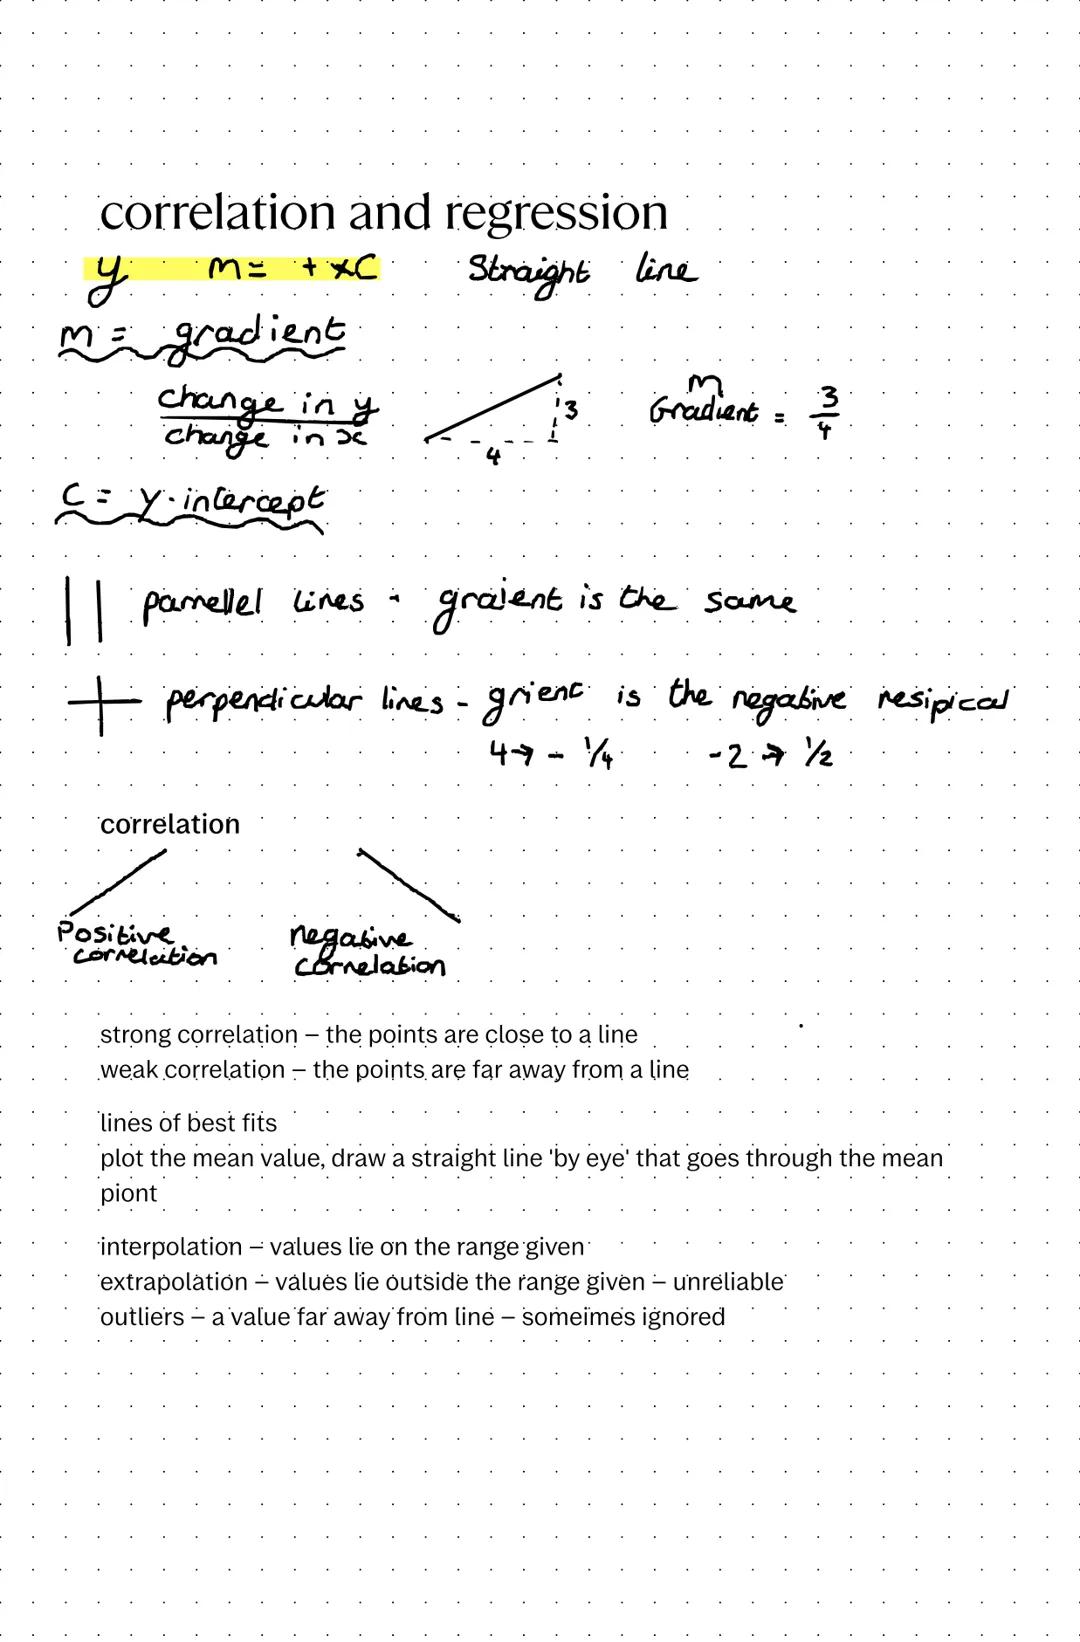 correlation and regression
y m= + xC Straight line
m = gradient
change in y
change in x
3
4
m
Gradient = 3/4
C = y-intercept
parrellel lines - graient is the same
perpendicular lines - grient is the negative resipical
4→ - 1/4 -2 → 1/2
correlation
Positive
correlation
negative
correlation
strong correlation – the points are close to a line
weak correlation – the points are far away from a line
lines of best fits
plot the mean value, draw a straight line 'by eye' that goes through the mean
piont
interpolation – values lie on the range given
extrapolation – values lie outside the range given – unreliable
outliers – a value far away from line – someimes ignored